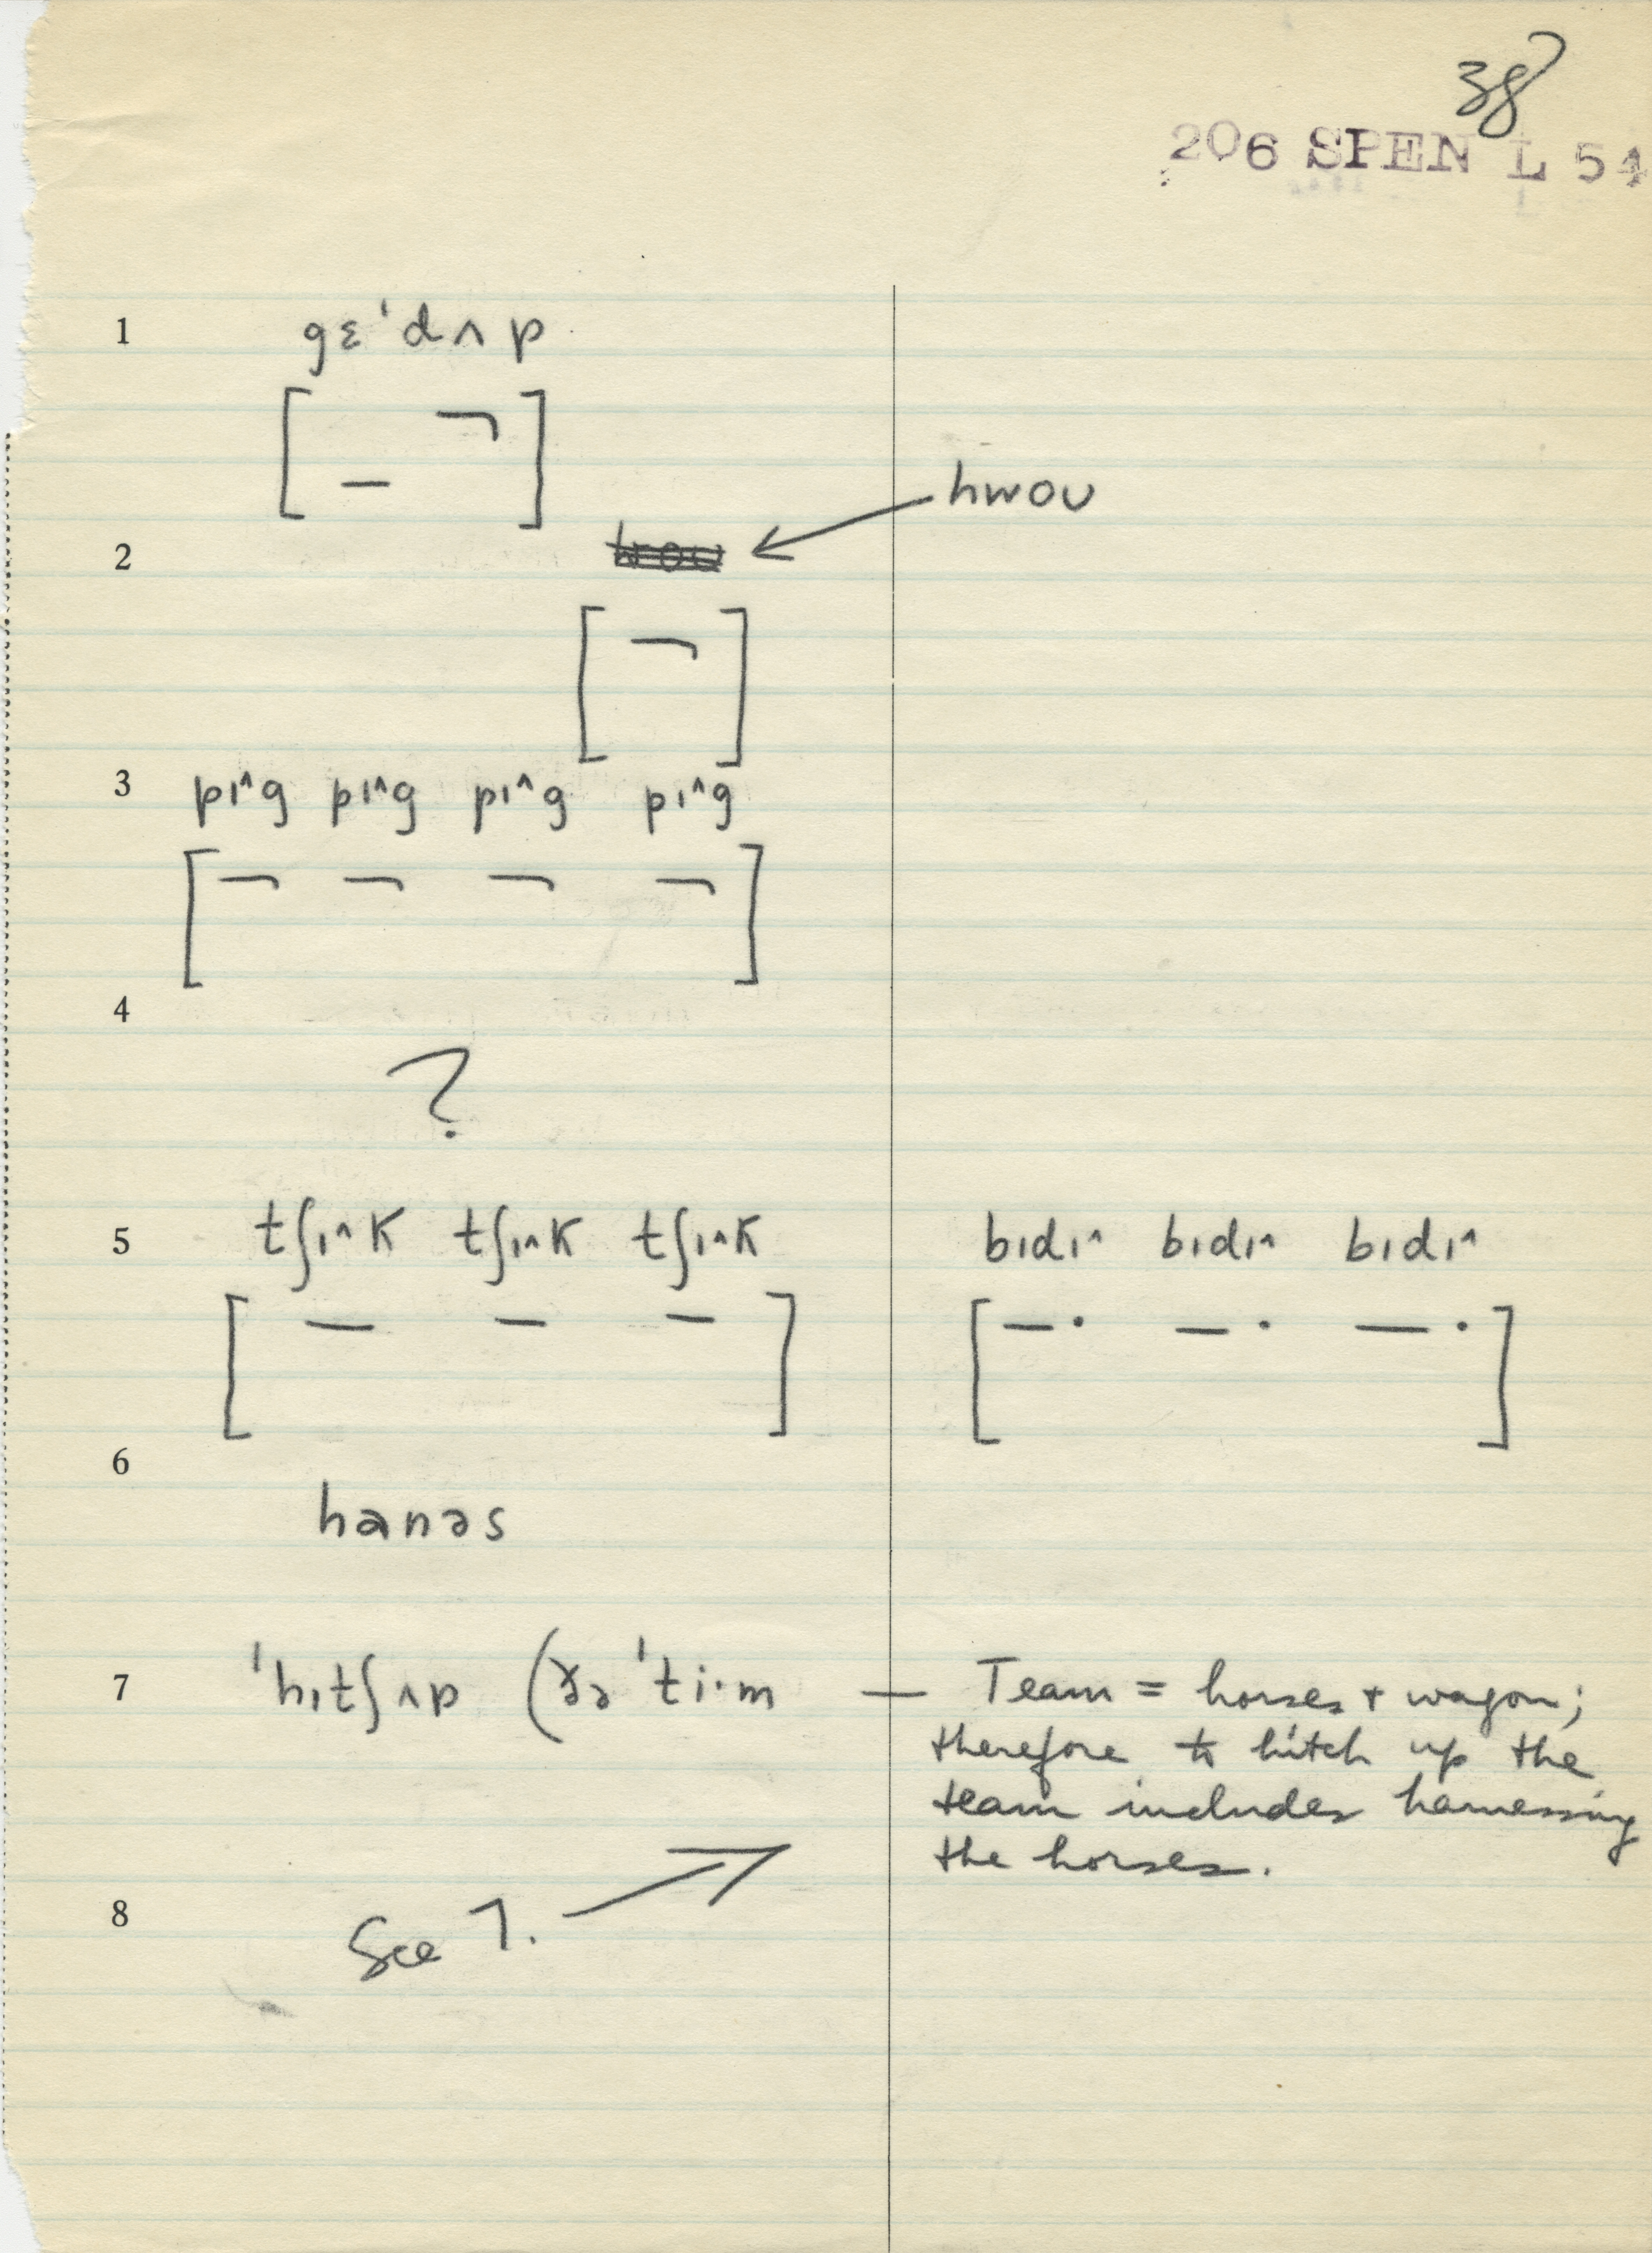 38
206 SPEN L 54
1 gɛˈdʌp
hwoʊ
2
3 pɪ^g pɪ^g pɪ^g pɪ^g
4
?
5 tʃɪ^k tʃɪ^k tʃɪ^k bɪdɪ^ bɪdɪ^ bɪdɪ^
6
hanəs
7 ˈhɪtʃʌp (ðə ˈti·m — Team = horses + wagon;
therefore to hitch up the
team includes harnessing
the horses.
8 See 7.